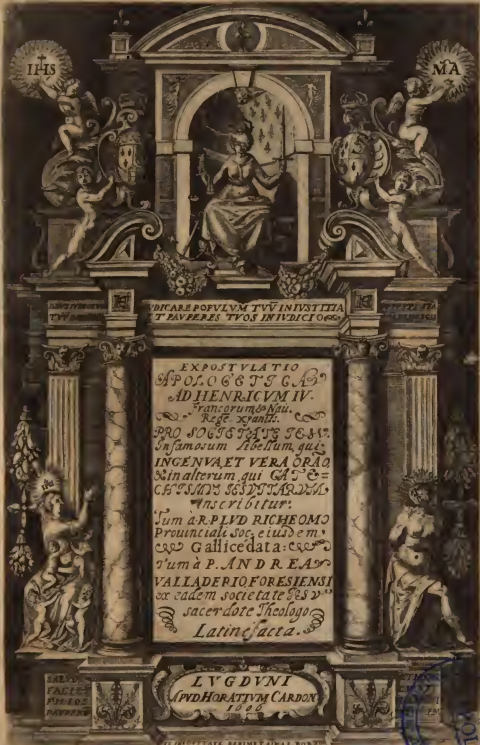 IHS
MA
IVDICARE POPVLVM TVV̄ IN IVSTITIA
ET PAVPERES TVOS IN IVDICIO
EXPOSTVLATIO
APOLOGETICA
AD HENRICVM IV.
Francorum & Nau.
Regē xpaniss.
PRO SOCIETATE IESV.
In famosum libellum, qui
INGENVA, ET VERA ORAŌ
& in alterum qui CATE=
CHISMVS IESVITARVM
inscribitur:
Tum à R.P. LVD RICHEOMO
Prouinciali Soc. eiusdem
Gallicè data:
Tum à P. ANDREA
VALLADERIO, FORESIENSI
ex eadem societate IESV
sacerdote Theologo
Latinè facta.
SALVOS
FACIET
FILIOS
PAVPERVM
LVGDVNI
APVD HORATIVM CARDON
1606